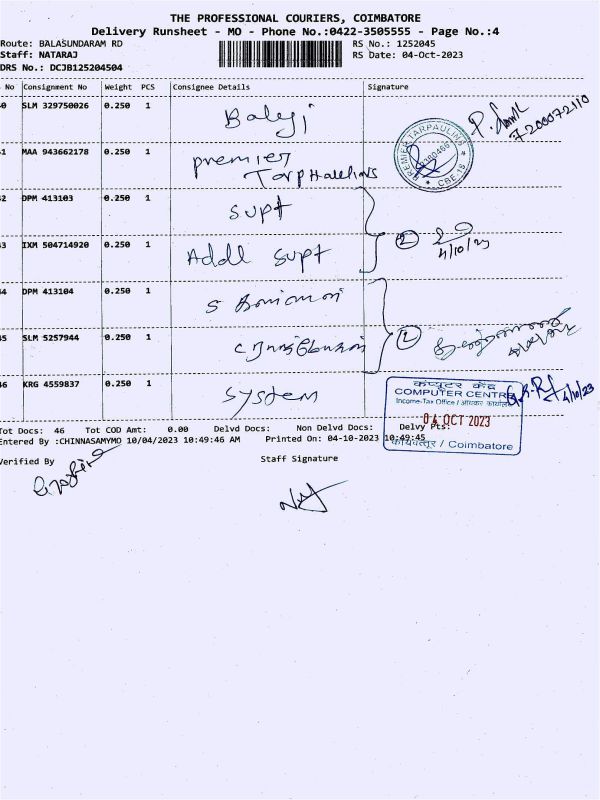 THE PROFESSIONAL COURIERS, COIMBATORE
Delivery Runsheet - MO - Phone No.:0422-3505555 - Page No.:4
Route: BALASUNDARAM RD
RS No.: 1252045
Staff: NATARAJ
RS Date: 04-Oct-2023
DRS No.: DCJB125204504
No Consignment No Weight PCS Consignee Details Signature
0 SLM 329750026 0.250 1 Balaji
1 MAA 943662178 0.250 1 premier
Tarphaulins
PREMIER TARPAULINS
CBE-18
2 DPM 413103 0.250 1 supt
3 IXM 504714920 0.250 1 Addl supt
2
4/10/23
4 DPM 413104 0.250 1
5 SLM 5257944 0.250 1
2
6 KRG 4559837 0.250 1 System
कंप्यूटर केंद्र
COMPUTER CENTRE
Income-Tax Office / आयकर कार्यालय
04 OCT 2023
कोयंबत्तूर / Coimbatore
4/10/23
Tot Docs: 46 Tot COD Amt: 0.00 Delvd Docs: Non Delvd Docs: Delvy Pts:
Entered By :CHINNASAMYMO 10/04/2023 10:49:46 AM Printed On: 04-10-2023 10:49:45
Verified By Staff Signature